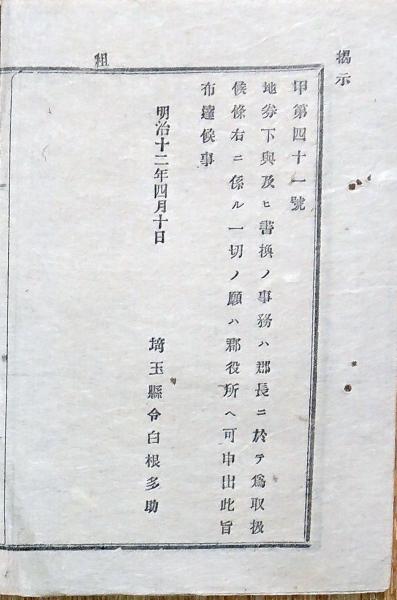 揭示
租
甲第四十一號
地券下與及ヒ書換ノ事務ハ郡長ニ於テ爲取扱
候條右ニ係ル一切ノ願ハ郡役所ヘ可申出此旨
布達候事
明治十二年四月十日
埼玉縣令白根多助